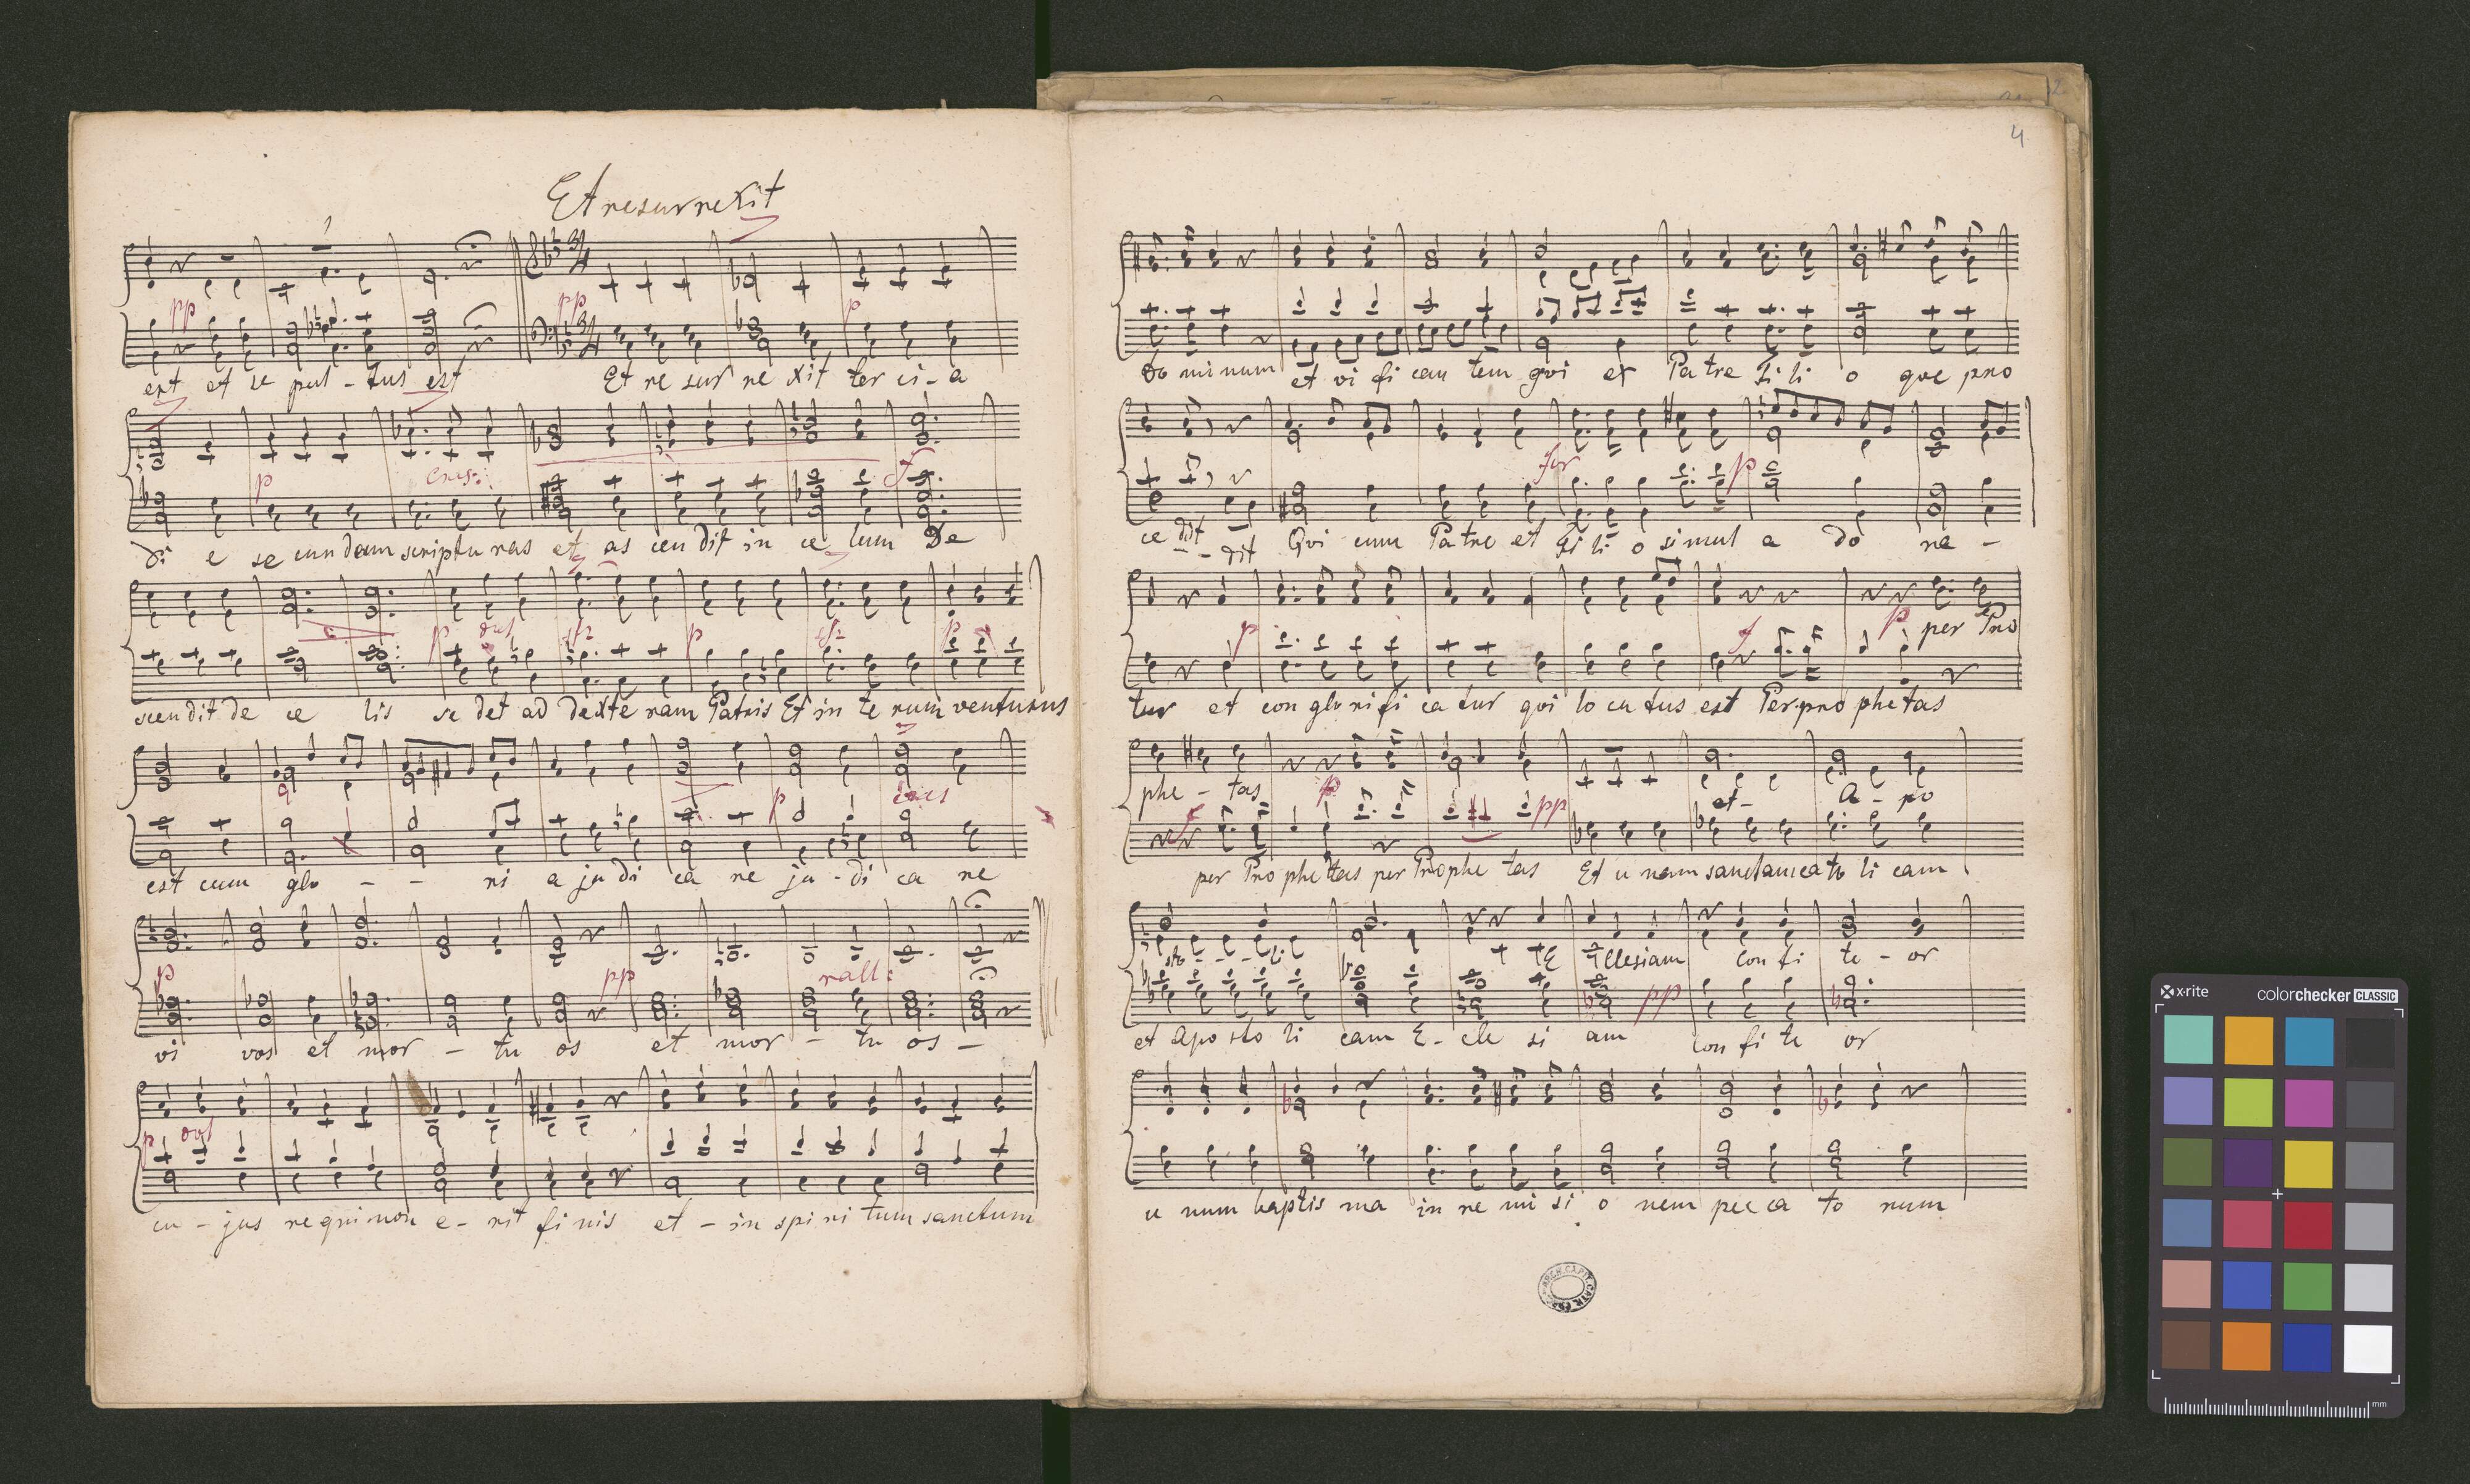 Et resurrexit
pp pp p
est et se pul - tus est Et re sur re xit ter ci - a
p cres: f
di e se cun dum scriptu ras et as cen dit in ce lum De
p p p
scen dit de ce lis se det ad dexte ram Patris Et in te rum venturus
p cres
est cum glo - - ri a ju di ca re ju - di ca re
p pp rall:
vi vos et mor - tu os et mor - tu os -
p
cu - jus re gni non e - rit fi nis et - in spi ri tum sanctum
4
do mi num et vi fi can tem qui ex Patre fi li o que pro
for p
ce dit - - dit Qui cum Patre et fi li o simul a do ra -
p f p per Pro
tur et con glo ri fi ca tur qui lo cu tus est Per pro phetas
phe - tas et - a - po
p pp
per Pro phe tas per Prophe tas Et u nam sanctam ca to li cam
sto - - - li E cllesiam con fi te - or
pp
et apo sto li cam E - cle si am con fi te or
u num baptis ma in re mi si o nem pec ca to rum
x-rite colorchecker CLASSIC
mm